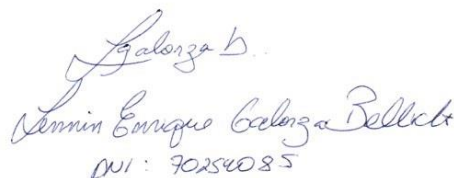 Lgalorza b.
Lennin Enrique Galorza Bellido
DNI: 70254085